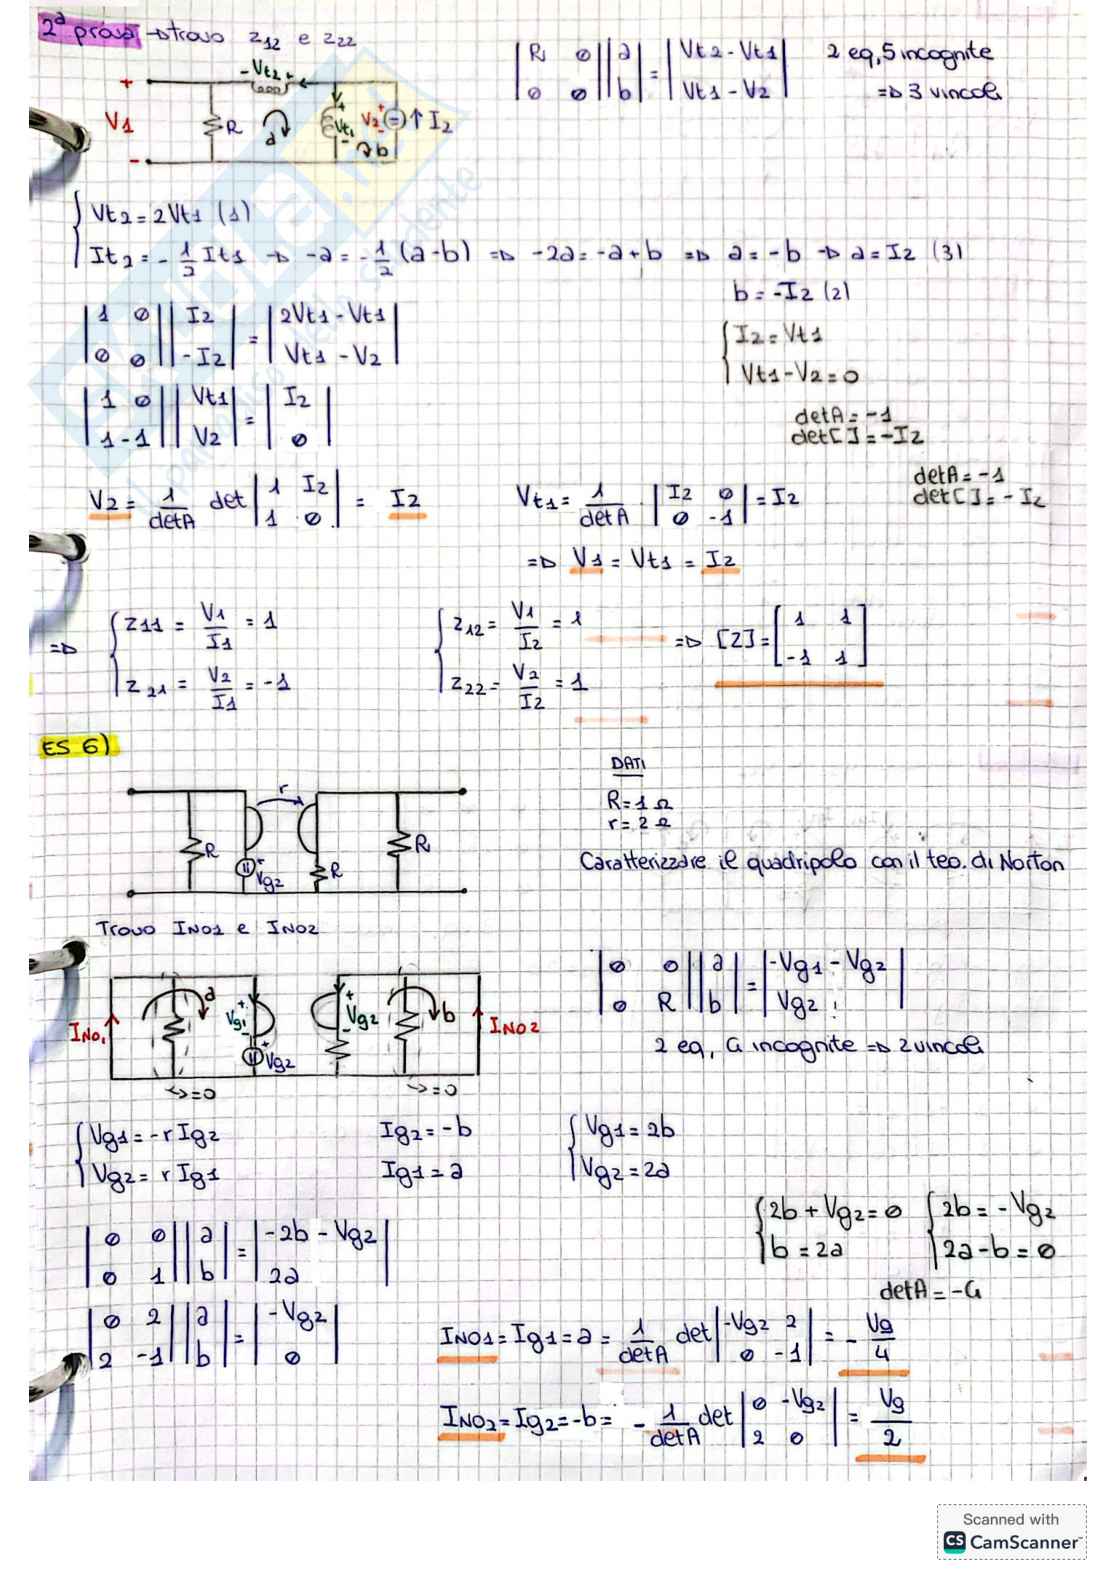 2ª prova → trovo z12 e z22
|R 0; 0 0| |a; b| = |Vt2 - Vt1; Vt1 - V2|
2 eq, 5 incognite
=> 3 vincoli
- Vt2 +
+ V1 -
R a Vt1 V2 I2 b
Vt2 = 2Vt1 (1)
It2 = -1/2 It1 → -a = -1/2 (a-b) => -2a = -a+b => a = -b → a = I2 (3)
b = -I2 (2)
|1 0; 0 0| |I2; -I2| = |2Vt1 - Vt1; Vt1 - V2|
I2 = Vt1
Vt1 - V2 = 0
|1 0; 1 -1| |Vt1; V2| = |I2; 0|
detA = -1
det[] = -I2
V2 = 1/detA det |1 I2; 1 0| = I2
Vt1 = 1/detA · |I2 0; 0 -1| = I2
detA = -1
det[] = -I2
=> V1 = Vt1 = I2
=> z11 = V1/I1 = 1
z21 = V2/I1 = -1
z12 = V1/I2 = 1
z22 = V2/I2 = 1
=> [Z] = [1 1; -1 1]
ES 6)
DATI
R = 1 Ω
r = 2 Ω
r
R Vg2 R R
Caratterizzare il quadripolo con il teo. di Norton
Trovo INO1 e INO2
INO1 a Vg1 Vg2 Vg2 b INO2
=0 =0
|0 0; 0 R| |a; b| = |-Vg1 - Vg2; Vg2|
2 eq, 4 incognite => 2 vincoli
Vg1 = -r Ig2
Vg2 = r Ig1
Ig2 = -b
Ig1 = a
Vg1 = 2b
Vg2 = 2a
|0 0; 0 1| |a; b| = |-2b - Vg2; 2a|
2b + Vg2 = 0
b = 2a
2b = -Vg2
2a - b = 0
detA = -4
|0 2; 2 -1| |a; b| = |-Vg2; 0|
INO1 = Ig1 = a = 1/detA det |-Vg2 2; 0 -1| = -Vg/4
INO2 = Ig2 = -b = -1/detA det |0 -Vg2; 2 0| = Vg/2
Scanned with
CS CamScanner